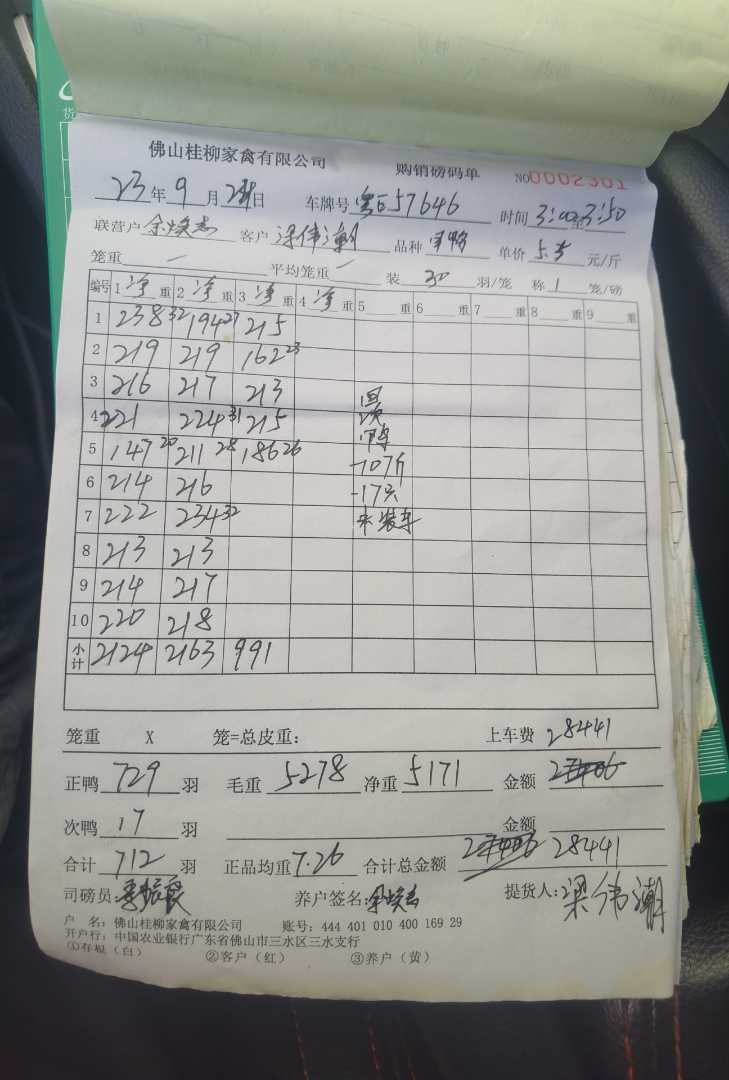 佛山桂柳家禽有限公司 购销磅码单 NO0002301
23年9月24日 车牌号 57646 时间 3:00至3:50
联营户 余焕志 客户 梁伟潮 品种 单价 5.5 元/斤
笼重 — 平均笼重 — 装 30 羽/笼 称 1 笼/磅
编号 1 净 重 2 净 重 3 净 重 4 净 重 5 重 6 重 7 重 8 重 9 重
1 238 32 194 27 215
2 219 219 162 23
3 216 217 213
4 221 224 31 215
5 147 20 211 28 186 26 -107斤
6 214 216 -17只
7 222 234 32 未装车
8 213 213
9 214 217
10 220 218
小计 2124 2163 991
笼重 X 笼=总皮重: 上车费 28441
正鸭 729 羽 毛重 5278 净重 5171 金额
次鸭 17 羽 金额
合计 712 羽 正品均重 7.26 合计总金额 28441
司磅员: 养户签名: 余焕志 提货人: 梁伟潮
户 名: 佛山桂柳家禽有限公司 账号: 444 401 010 400 169 29
开户行: 中国农业银行广东省佛山市三水区三水支行
①存根(白) ②客户(红) ③养户(黄)